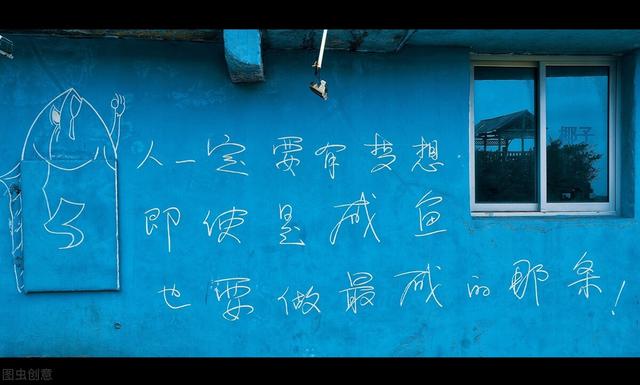 人一定要有梦想
即使是咸鱼
也要做最咸的那条！
椰子
图虫创意